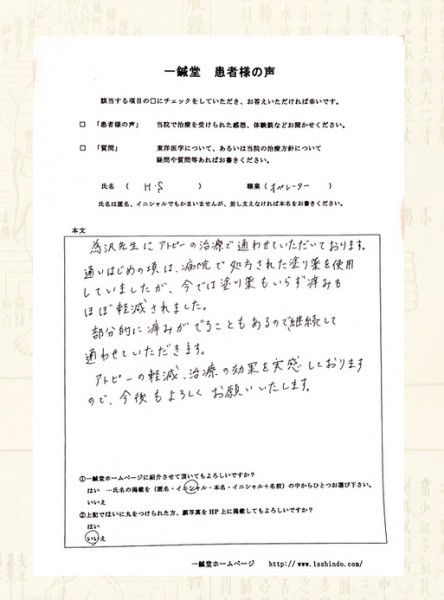 一鍼堂　患者様の声
該当する項目の□にチェックをしていただき、お答えいただければ幸いです。
□　「患者様の声」　当院で治療を受けられた感想、体験談などお聞かせください。
□　「質問」　東洋医学について、あるいは当院の治療方針について
疑問や質問等あればお書きください。
氏名　（　H.S　）　職業（オペレーター　）
氏名は匿名、イニシャルでもかまいませんが、差し支えなければ本名をお書きください。
本文
為沢先生にアトピーの治療で通わせていただいております。
通いはじめの頃は、病院で処方された塗り薬を使用
していましたが、今では塗り薬もいらず痒みも
ほぼ軽減されました。
部分的に痒みがでることもあるので継続して
通わせていただきます。
アトピーの軽減、治療の効果を実感しております
ので、今後もよろしくお願いいたします。
①一鍼堂ホームページに紹介させて頂いてもよろしいですか？
はい　…氏名の掲載を（匿名・イニシャル・本名・イニシャル＋名前）の中からひとつお選び下さい。
いいえ
②上記ではいに丸をつけられた方、顔写真をHP上に掲載してもよろしいですか？
はい
いいえ
一鍼堂ホームページ　http://www.1sshindo.com/